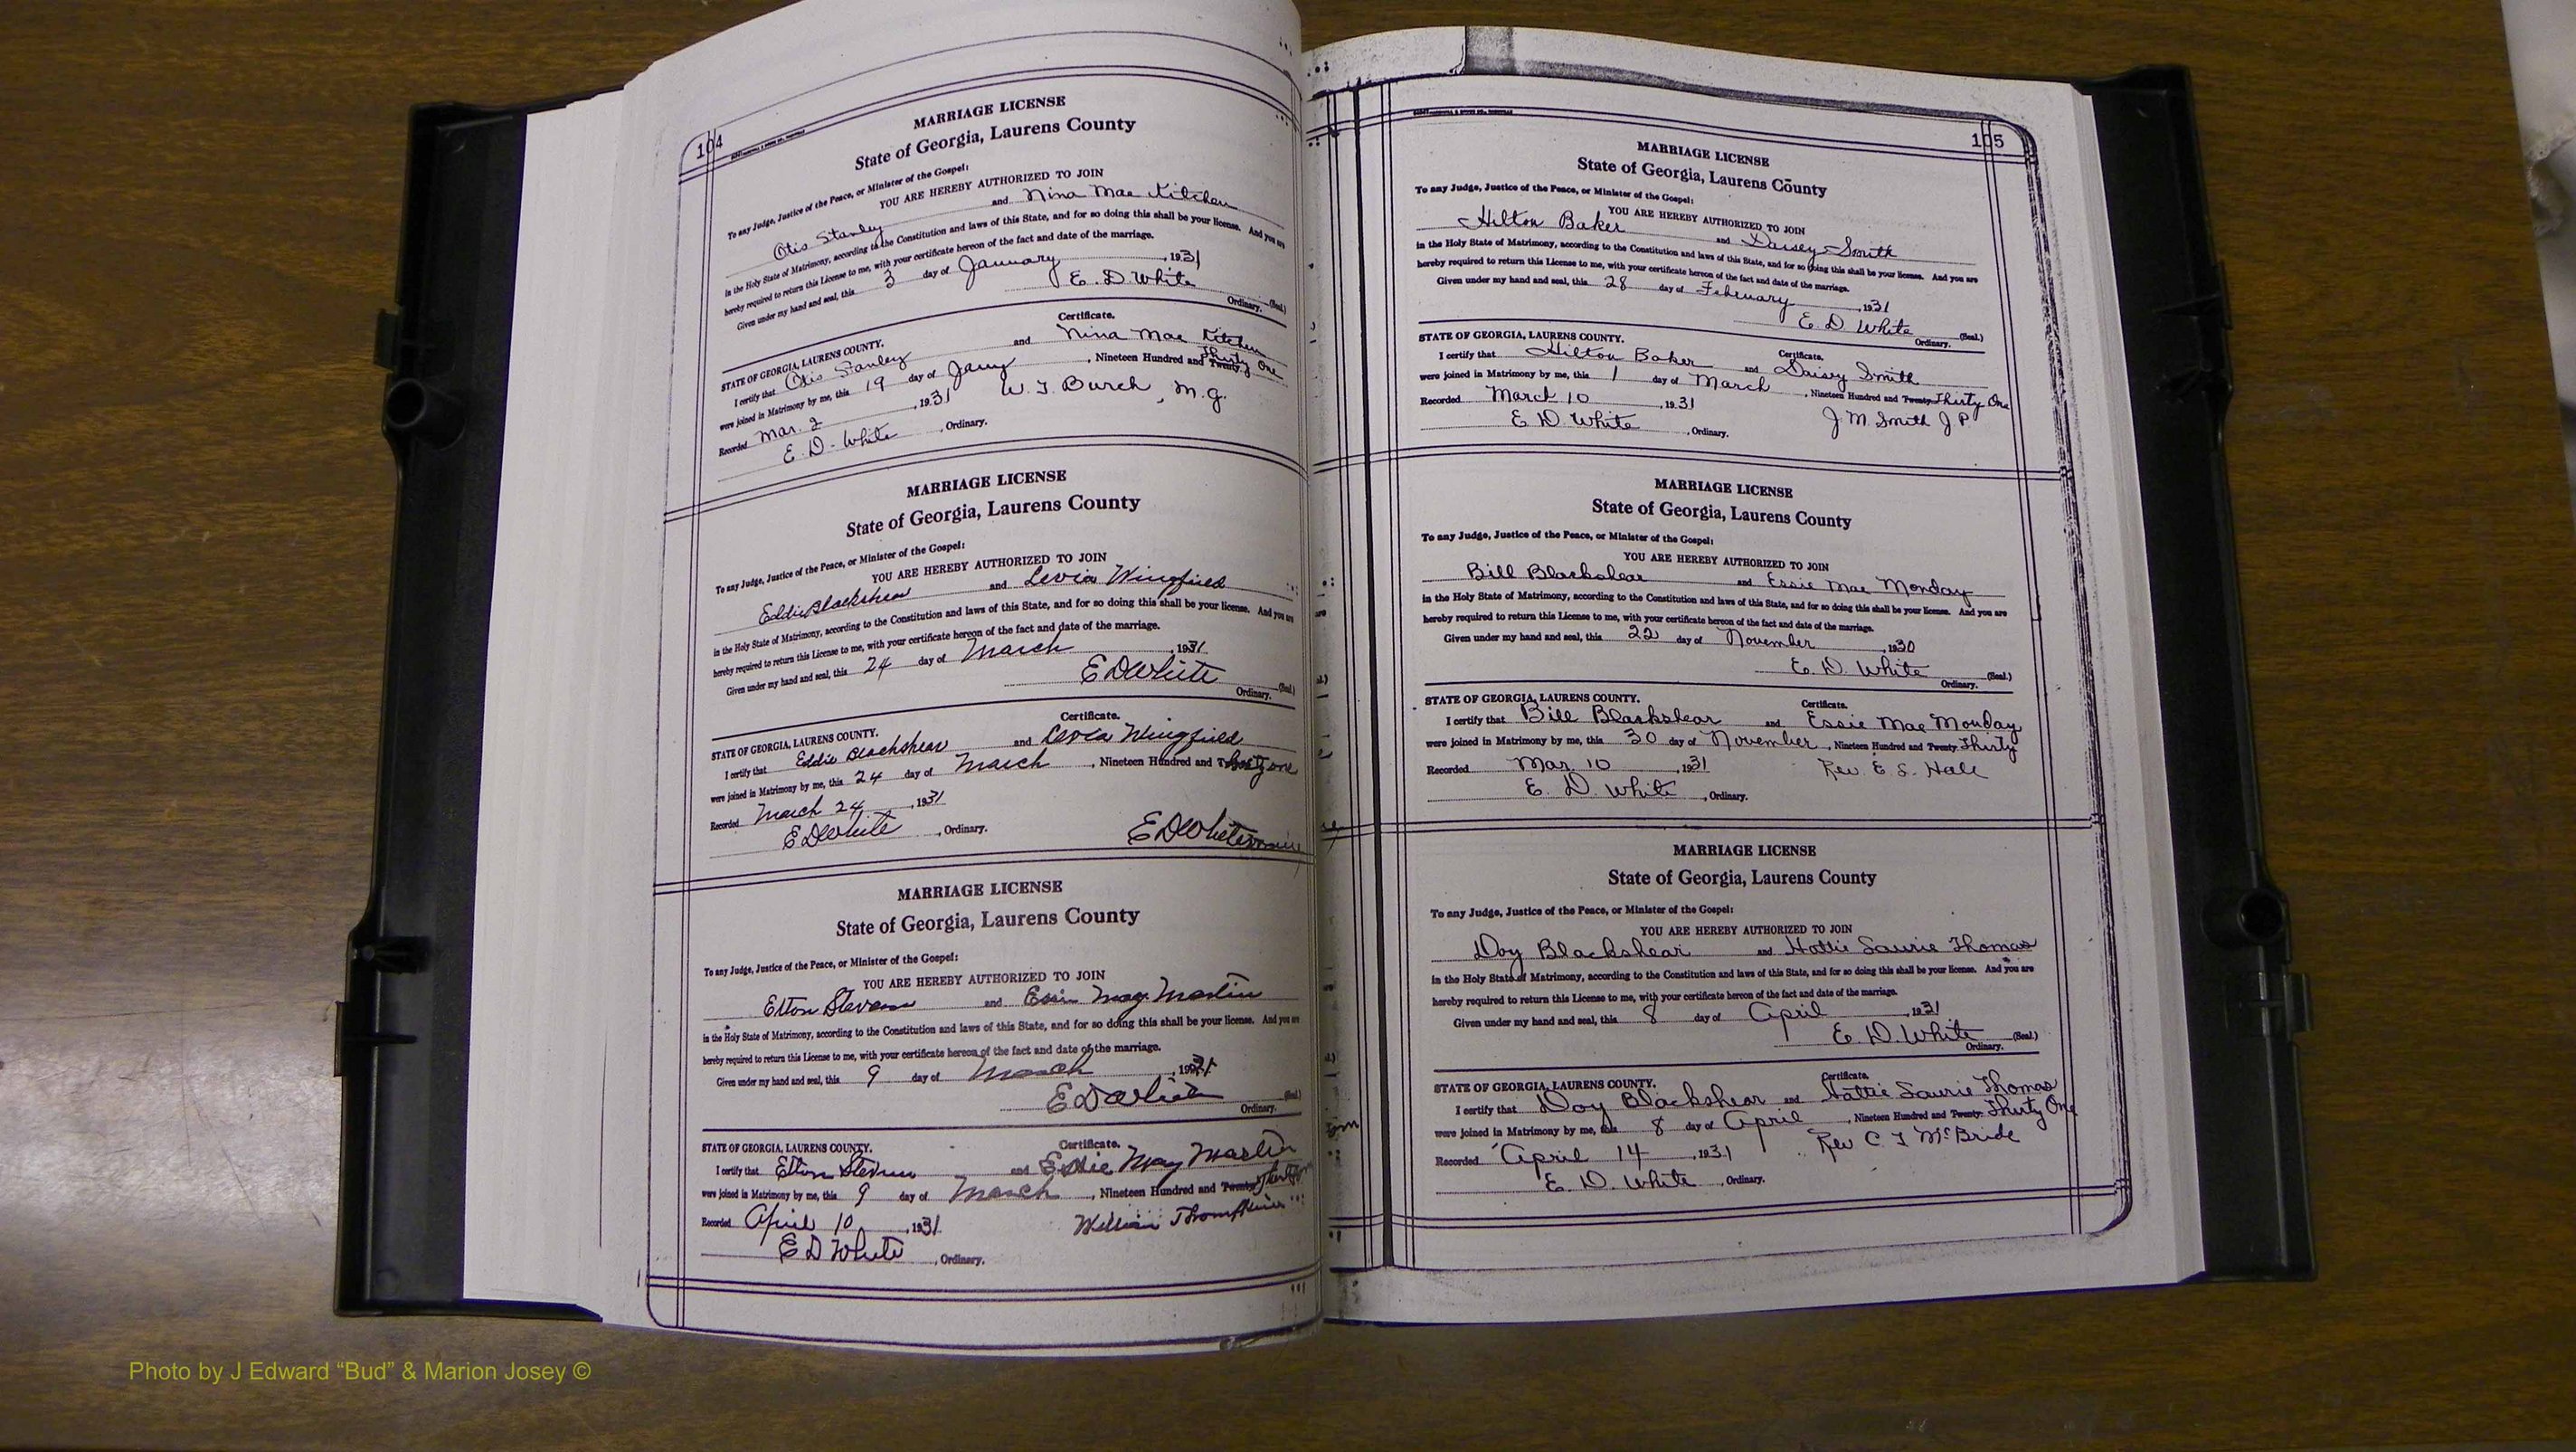 104
MARRIAGE LICENSE
State of Georgia, Laurens County
To any Judge, Justice of the Peace, or Minister of the Gospel:
YOU ARE HEREBY AUTHORIZED TO JOIN
Otis Stanley and Nina Mae Kitchen
in the Holy State of Matrimony, according to the Constitution and laws of this State, and for so doing this shall be your license. And you are
hereby required to return this License to me, with your certificate hereon of the fact and date of the marriage.
Given under my hand and seal, this 3 day of January, 1931
E. D. White
Ordinary. (Seal.)
Certificate.
STATE OF GEORGIA, LAURENS COUNTY.
I certify that Otis Stanley and Nina Mae Kitchen
were joined in Matrimony by me, this 19 day of Jany, Nineteen Hundred and Twenty Thirty One
Recorded Mar. 2, 1931 W. J. Burch, M.G.
E. D. White, Ordinary.
MARRIAGE LICENSE
State of Georgia, Laurens County
To any Judge, Justice of the Peace, or Minister of the Gospel:
YOU ARE HEREBY AUTHORIZED TO JOIN
Eddie Blackshear and Levia Wingfield
in the Holy State of Matrimony, according to the Constitution and laws of this State, and for so doing this shall be your license. And you are
hereby required to return this License to me, with your certificate hereon of the fact and date of the marriage.
Given under my hand and seal, this 24 day of March, 1931.
E D White
Ordinary. (Seal.)
Certificate.
STATE OF GEORGIA, LAURENS COUNTY.
I certify that Eddie Blackshear and Levia Wingfield
were joined in Matrimony by me, this 24 day of March, Nineteen Hundred and Thirty one
Recorded March 24, 1931
E D White, Ordinary. E D White
MARRIAGE LICENSE
State of Georgia, Laurens County
To any Judge, Justice of the Peace, or Minister of the Gospel:
YOU ARE HEREBY AUTHORIZED TO JOIN
Elton Stevens and Essie May Maslin
in the Holy State of Matrimony, according to the Constitution and laws of this State, and for so doing this shall be your license. And you are
hereby required to return this License to me, with your certificate hereon of the fact and date of the marriage.
Given under my hand and seal, this 9 day of March, 1931
E D White
Ordinary. (Seal.)
STATE OF GEORGIA, LAURENS COUNTY. Certificate.
I certify that Elton Stevens and Essie May Maslin
were joined in Matrimony by me, this 9 day of March, Nineteen Hundred and Twenty
Recorded April 10, 1931. William Thompkins
E D White, Ordinary.
105
MARRIAGE LICENSE
State of Georgia, Laurens County
To any Judge, Justice of the Peace, or Minister of the Gospel:
YOU ARE HEREBY AUTHORIZED TO JOIN
Hilton Baker and Daisey Smith
in the Holy State of Matrimony, according to the Constitution and laws of this State, and for so doing this shall be your license. And you are
hereby required to return this License to me, with your certificate hereon of the fact and date of the marriage.
Given under my hand and seal, this 28 day of February, 1931
E. D. White (Seal.)
Ordinary.
STATE OF GEORGIA, LAURENS COUNTY. Certificate.
I certify that Hilton Baker and Daisy Smith
were joined in Matrimony by me, this 1 day of March, Nineteen Hundred and Twenty Thirty One
Recorded March 10, 1931 J. M. Smith J P
E D. White, Ordinary.
MARRIAGE LICENSE
State of Georgia, Laurens County
To any Judge, Justice of the Peace, or Minister of the Gospel:
YOU ARE HEREBY AUTHORIZED TO JOIN
Bill Blackshear and Essie Mae Monday
in the Holy State of Matrimony, according to the Constitution and laws of this State, and for so doing this shall be your license. And you are
hereby required to return this License to me, with your certificate hereon of the fact and date of the marriage.
Given under my hand and seal, this 22 day of November, 1930
E. D. White (Seal.)
Ordinary.
STATE OF GEORGIA, LAURENS COUNTY. Certificate.
I certify that Bill Blackshear and Essie Mae Monday
were joined in Matrimony by me, this 30 day of November, Nineteen Hundred and Twenty Thirty
Recorded Mar. 10, 1931 Rev. E. S. Hall
E. D. White, Ordinary.
MARRIAGE LICENSE
State of Georgia, Laurens County
To any Judge, Justice of the Peace, or Minister of the Gospel:
YOU ARE HEREBY AUTHORIZED TO JOIN
Doy Blackshear and Hattie Laurie Thomas
in the Holy State of Matrimony, according to the Constitution and laws of this State, and for so doing this shall be your license. And you are
hereby required to return this License to me, with your certificate hereon of the fact and date of the marriage.
Given under my hand and seal, this 8 day of April, 1931
E. D. White (Seal.)
Ordinary.
STATE OF GEORGIA, LAURENS COUNTY. Certificate.
I certify that Doy Blackshear and Hattie Laurie Thomas
were joined in Matrimony by me, this 8 day of April, Nineteen Hundred and Twenty Thirty One
Recorded April 14, 1931 Rev C. J McBride
E. D. White, Ordinary.
Photo by J Edward “Bud” & Marion Josey ©